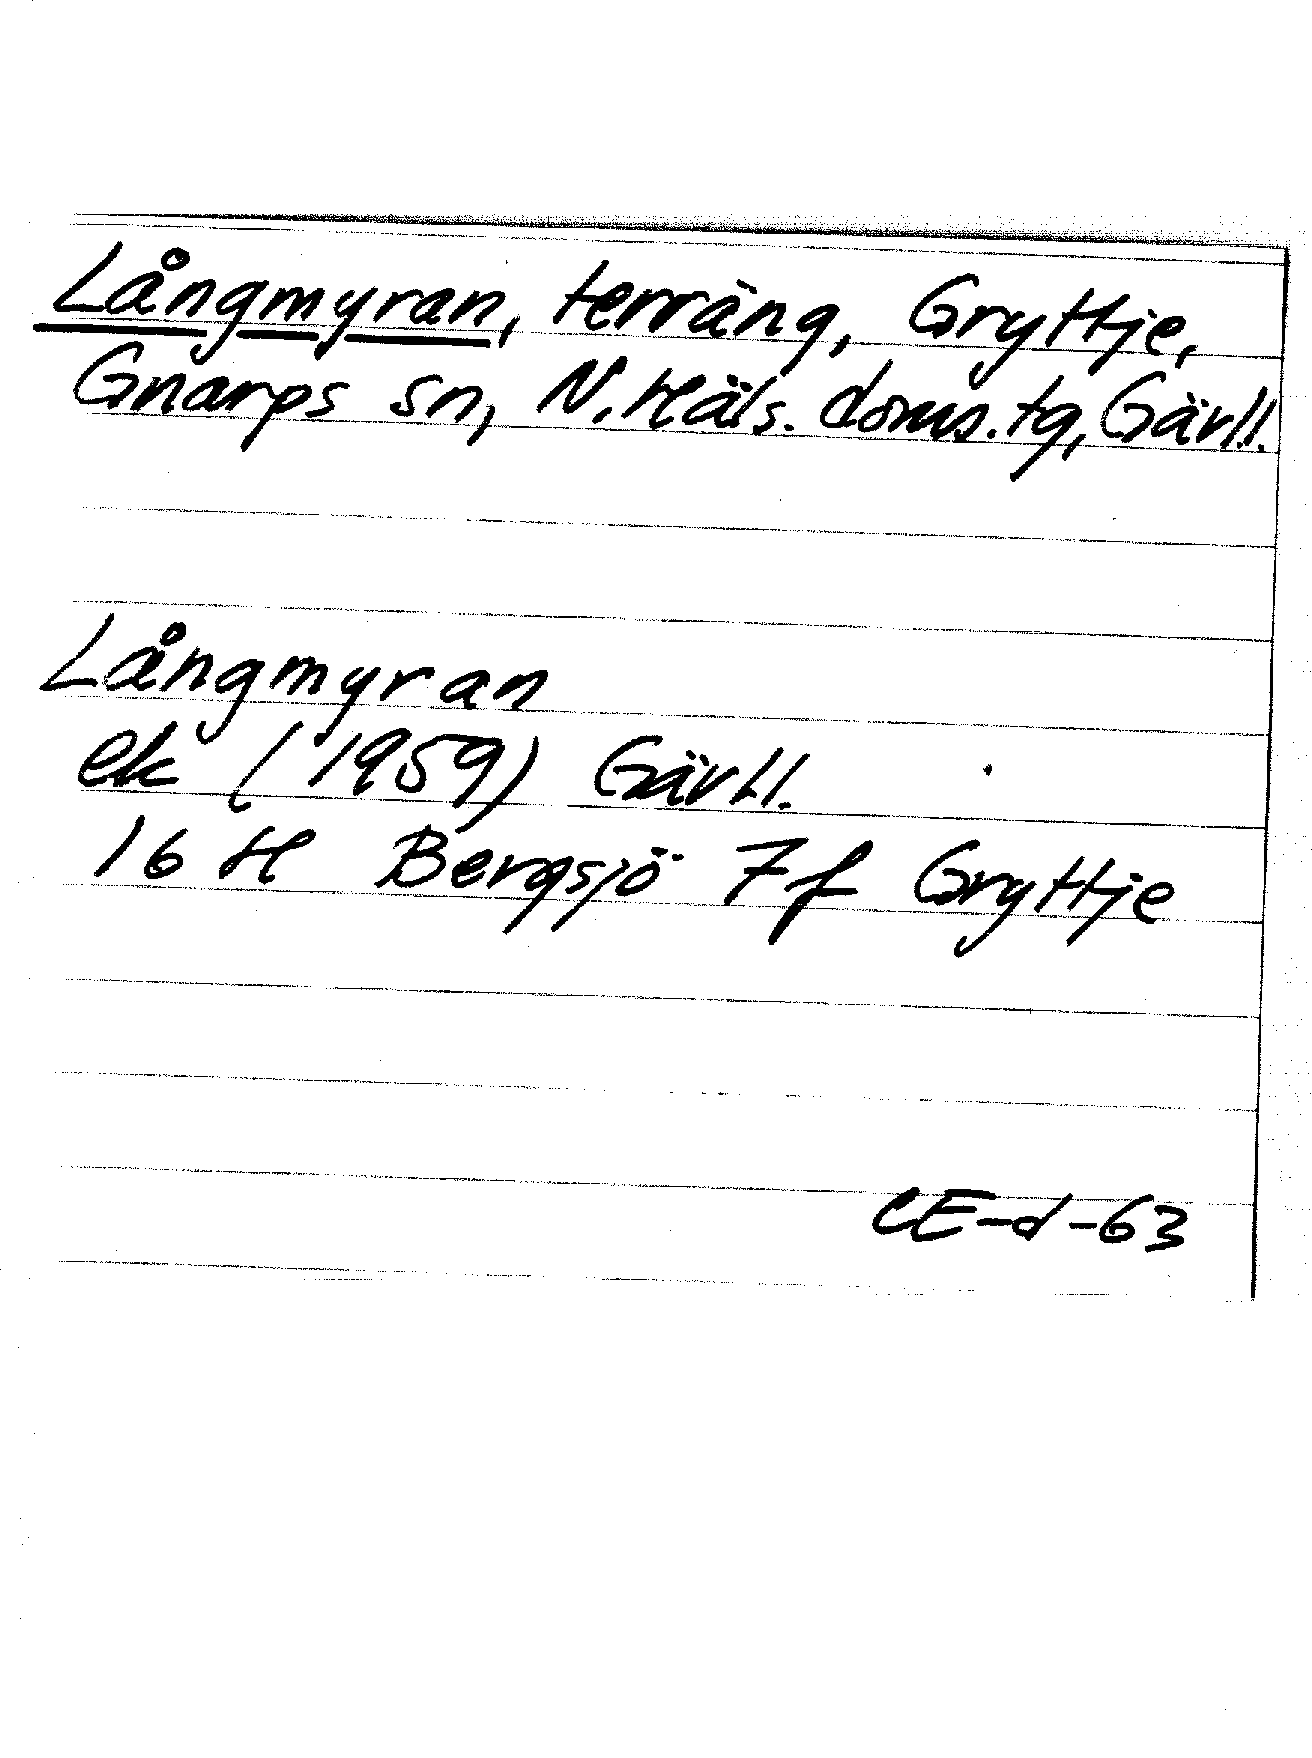 Långmyran, terräng, Gryttje,
Gnarps sn, N. Häls. doms. tg, Gävll.
Långmyran
ek (1959) Gävll.
16 H Bergsjö 7f Gryttje
CE-d-63